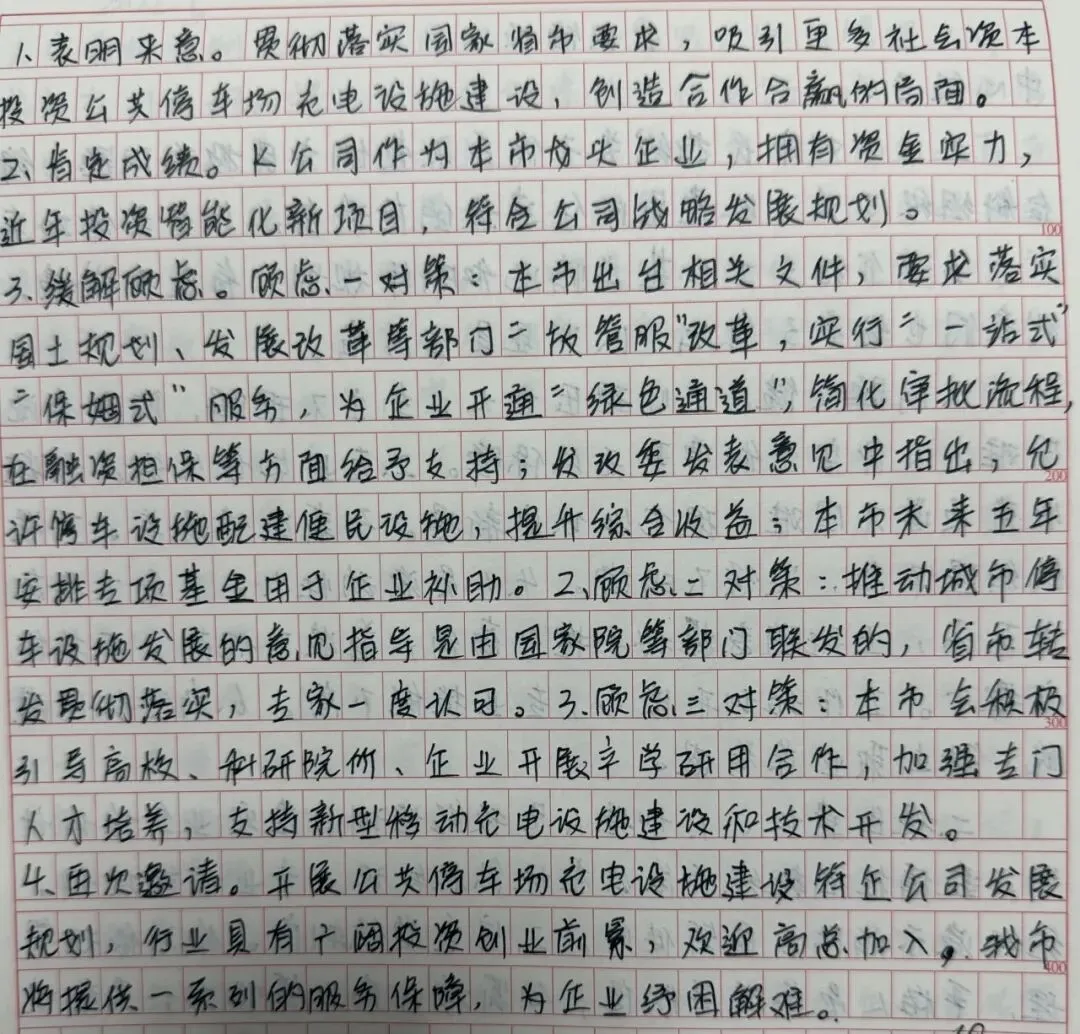 1、表明来意。贯彻落实国家省市要求，吸引更多社会资本
投资公共停车场充电设施建设，创造合作合赢的局面。
2、肯定成绩。K公司作为本市龙头企业，拥有资金实力，
近年投资智能化新项目，符合公司战略发展规划。
100
3、缓解顾虑。顾虑一对策：本市出台相关文件，要求落实
国土规划、发展改革等部门“放管服”改革，实行“一站式”
“保姆式”服务，为企业开通“绿色通道”，简化审批流程，
在融资担保等方面给予支持；发改委发表意见中指出，允
200
许停车设施配建便民设施，提升综合收益；本市未来五年
安排专项基金用于企业补助。2、顾虑二对策：推动城市停
车设施发展的意见指导是由国家院等部门联发的，省市转
发贯彻落实，专家一度认可。3、顾虑三对策：本市会积极
300
引导高校、科研院所、企业开展产学研用合作，加强专门
人才培养，支持新型移动充电设施建设和技术开发。
4、再次邀请。开展公共停车场充电设施建设符企公司发展
规划，行业具有广阔投资创业前景，欢迎高总加入，我市
400
将提供一系列的服务保障，为企业纾困解难。